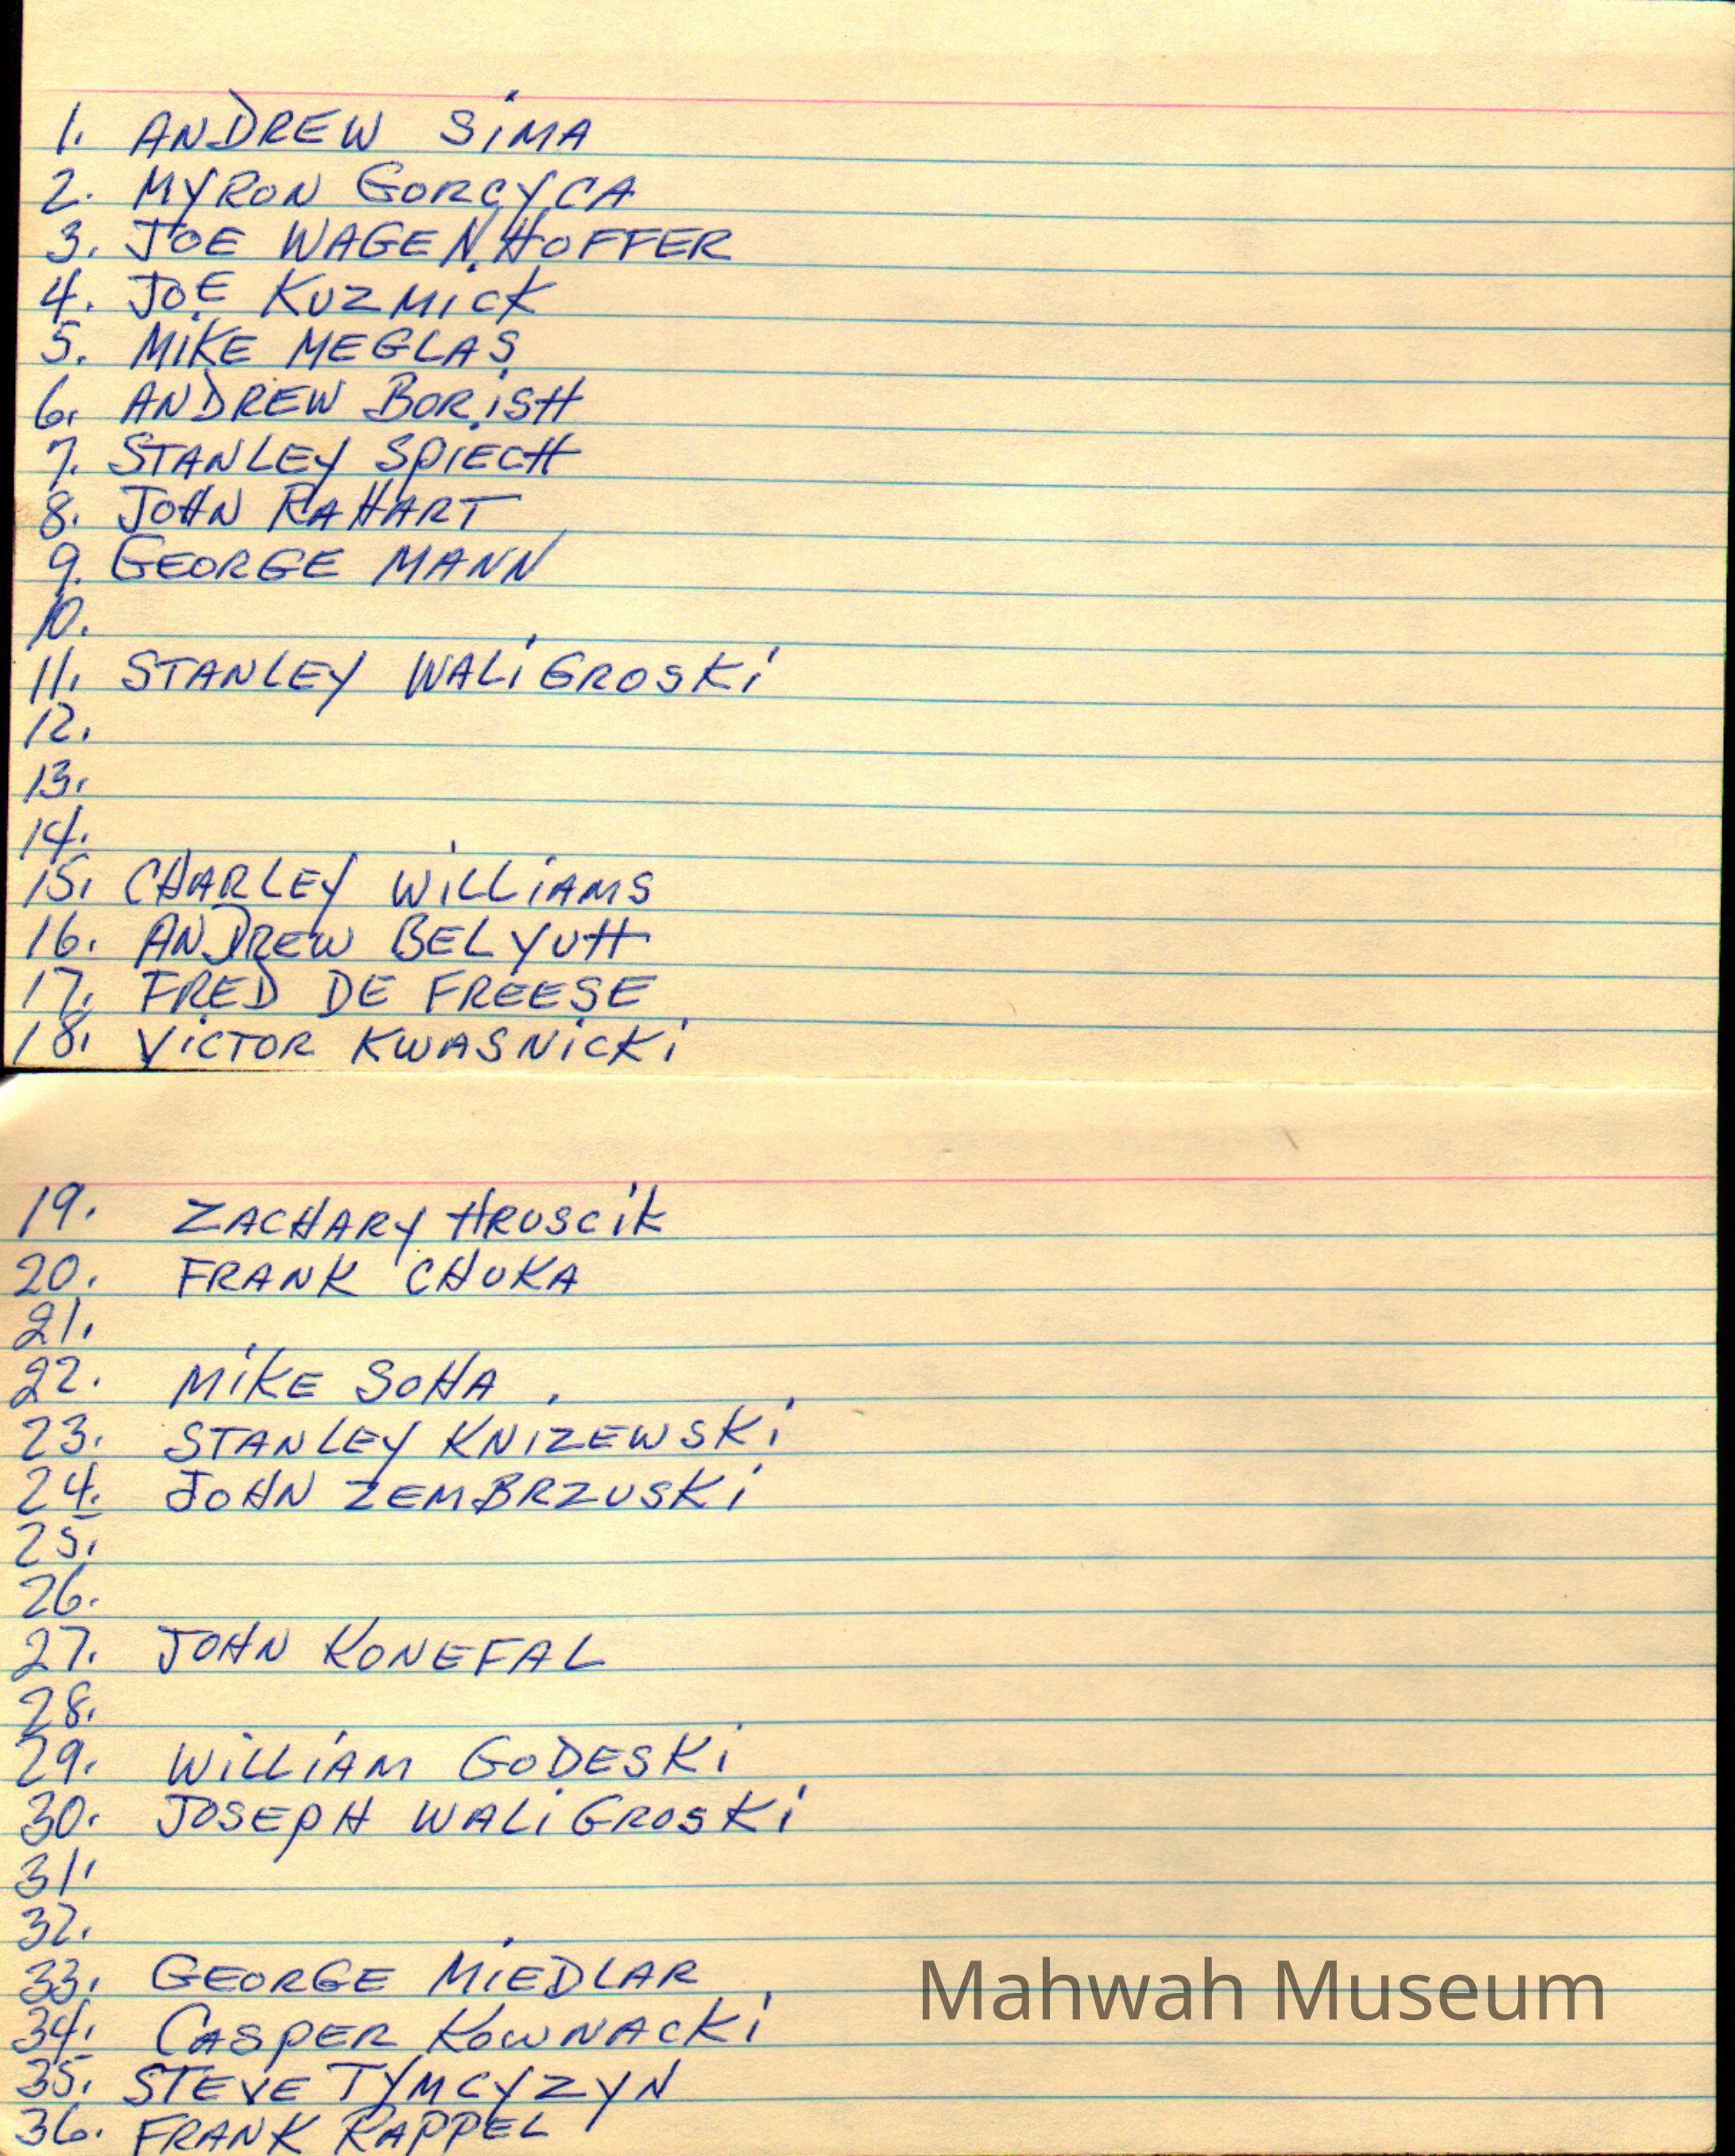 1. ANDREW SIMA
2. MYRON GORCYCA
3. JOE WAGENHOFFER
4. JOE KUZMICK
5. MIKE MEGLAS
6. ANDREW BORISH
7. STANLEY SPIECH
8. JOHN RAHART
9. GEORGE MANN
10.
11. STANLEY WALIGROSKI
12.
13.
14.
15. CHARLEY WILLIAMS
16. ANDREW BELYUH
17. FRED DE FREESE
18. VICTOR KWASNICKI
19. ZACHARY HRUSCIK
20. FRANK CHUKA
21.
22. MIKE SOHA
23. STANLEY KNIZEWSKI
24. JOHN ZEMBRZUSKI
25.
26.
27. JOHN KONEFAL
28.
29. WILLIAM GODESKI
30. JOSEPH WALIGROSKI
31.
32.
33. GEORGE MIEDLAR
34. CASPER KOWNACKI
35. STEVE TYMCYZYN
36. FRANK RAPPEL
Mahwah Museum